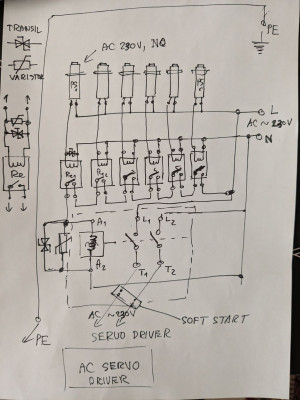 TRANSIL
VARISTOR
AC 230V, NO
PE
L
AC ~ 230V
N
Re
Re1
L1
L2
A1
A2
T1
T2
AC ~230V
SERVO DRIVER
SOFT START
PE
AC SERVO
DRIVER